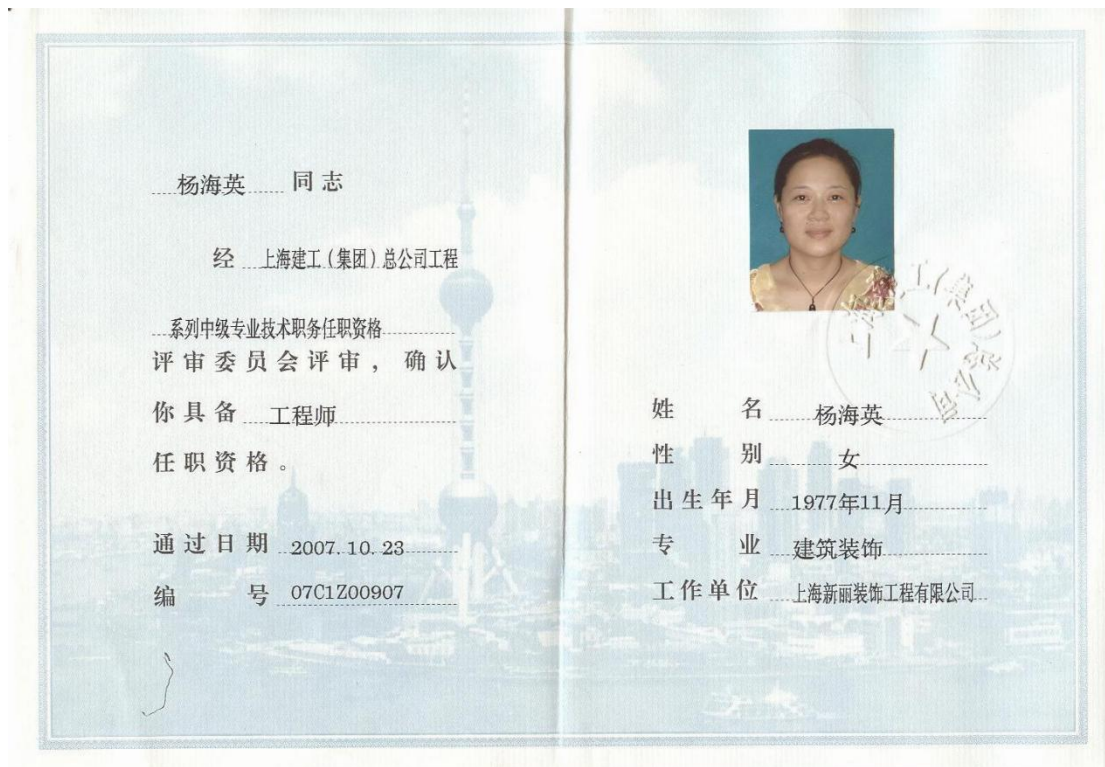 杨海英 同志
经 上海建工(集团)总公司工程
系列中级专业技术职务任职资格
评审委员会评审，确认
你具备 工程师
任职资格。
通过日期 2007.10.23
编号 07C1Z00907
姓名 杨海英
性别 女
出生年月 1977年11月
专业 建筑装饰
工作单位 上海新丽装饰工程有限公司